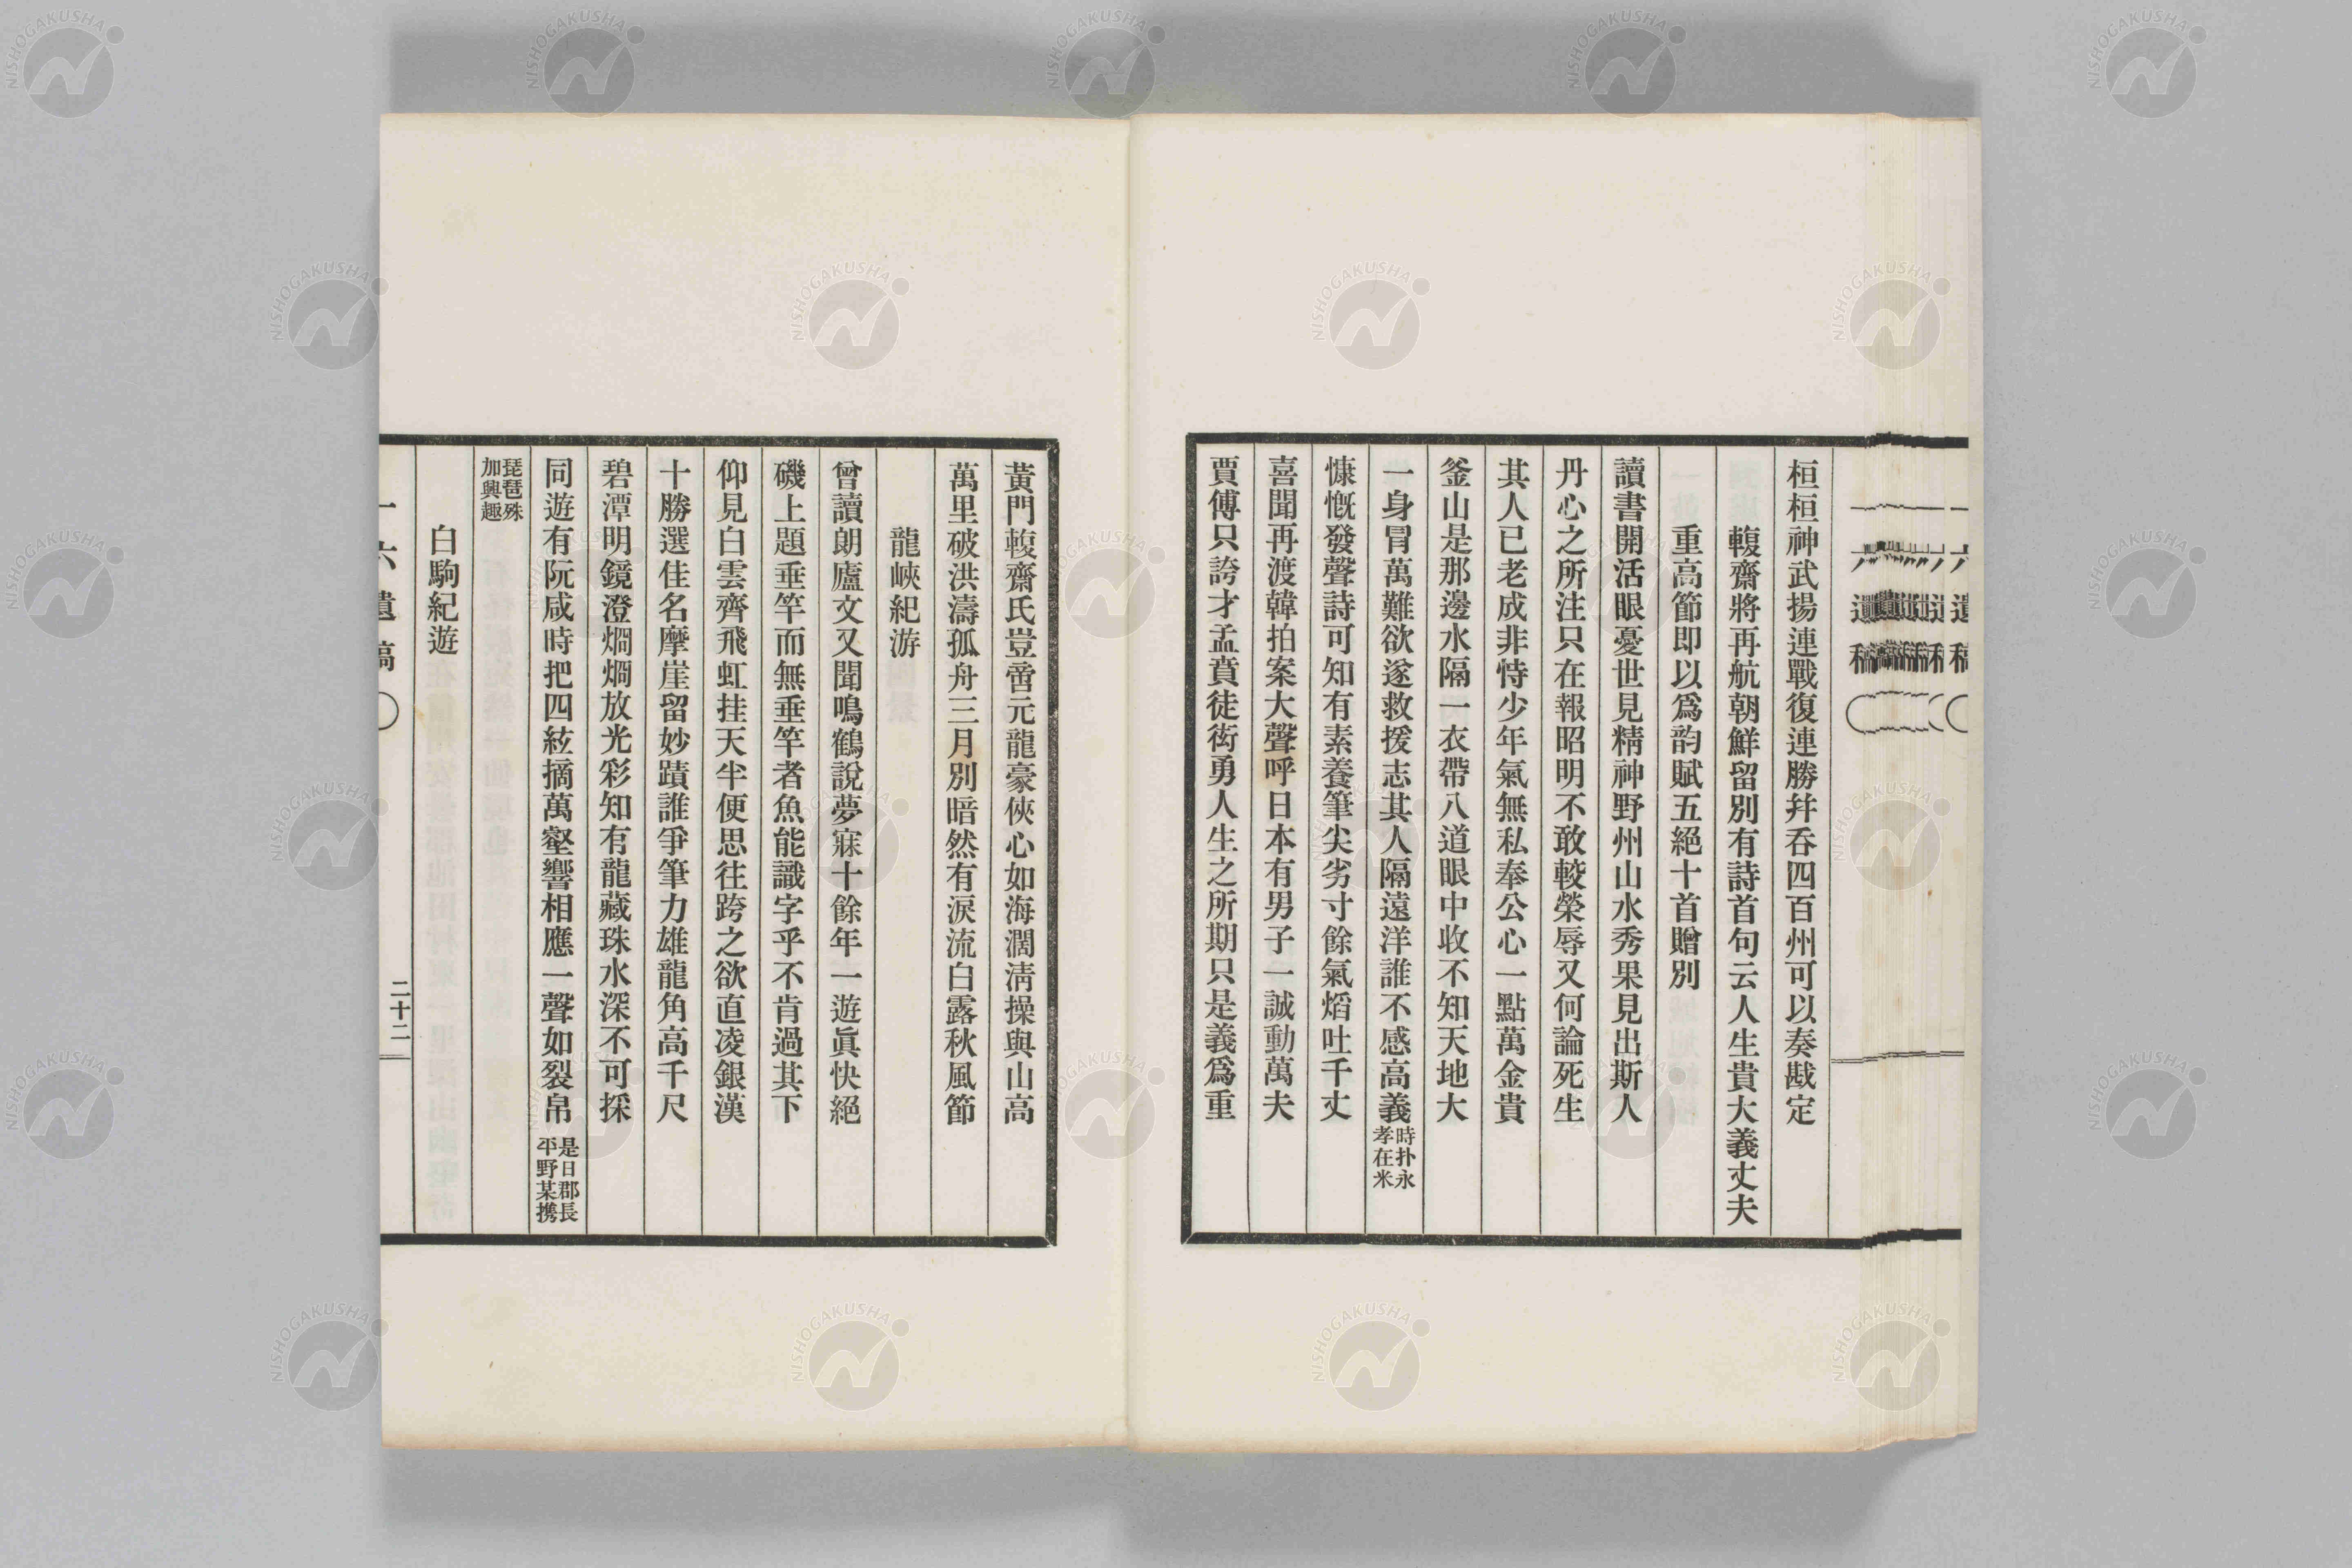 桓桓神武揚連戰復連勝幷呑四百州可以奏戡定
輹齋將再航朝鮮留別有詩首句云人生貴大義丈夫
重高節即以爲韵賦五絕十首贈別
讀書開活眼憂世見精神野州山水秀果見出斯人
丹心之所注只在報昭明不敢較榮辱又何論死生
其人已老成非恃少年氣無私奉公心一點萬金貴
釜山是那邊水隔一衣帶八道眼中收不知天地大
一身冒萬難欲遂救援志其人隔遠洋誰不感高義時扑永孝在米
慷慨發聲詩可知有素養筆尖劣寸餘氣焰吐千丈
喜聞再渡韓拍案大聲呼日本有男子一誠動萬夫
賈傅只誇才孟賁徒衒勇人生之所期只是義爲重
黃門輹齋氏豈啻元龍豪俠心如海濶淸操與山高
萬里破洪濤孤舟三月別暗然有淚流白露秋風節
龍峽紀游
曾讀朗廬文又聞鳴鶴說夢寐十餘年一遊眞快絕
磯上題垂竿而無垂竿者魚能識字乎不肯過其下
仰見白雲齊飛虹挂天半便思往跨之欲直凌銀漢
十勝選佳名摩崖留妙蹟誰爭筆力雄龍角高千尺
碧潭明鏡澄烱烱放光彩知有龍藏珠水深不可採
同遊有阮咸時把四絃摘萬壑響相應一聲如裂帛是日郡長平野某携
琵琶殊加興趣
白駒紀遊
一六遺稿
二十二
NISHOGAKUSHA